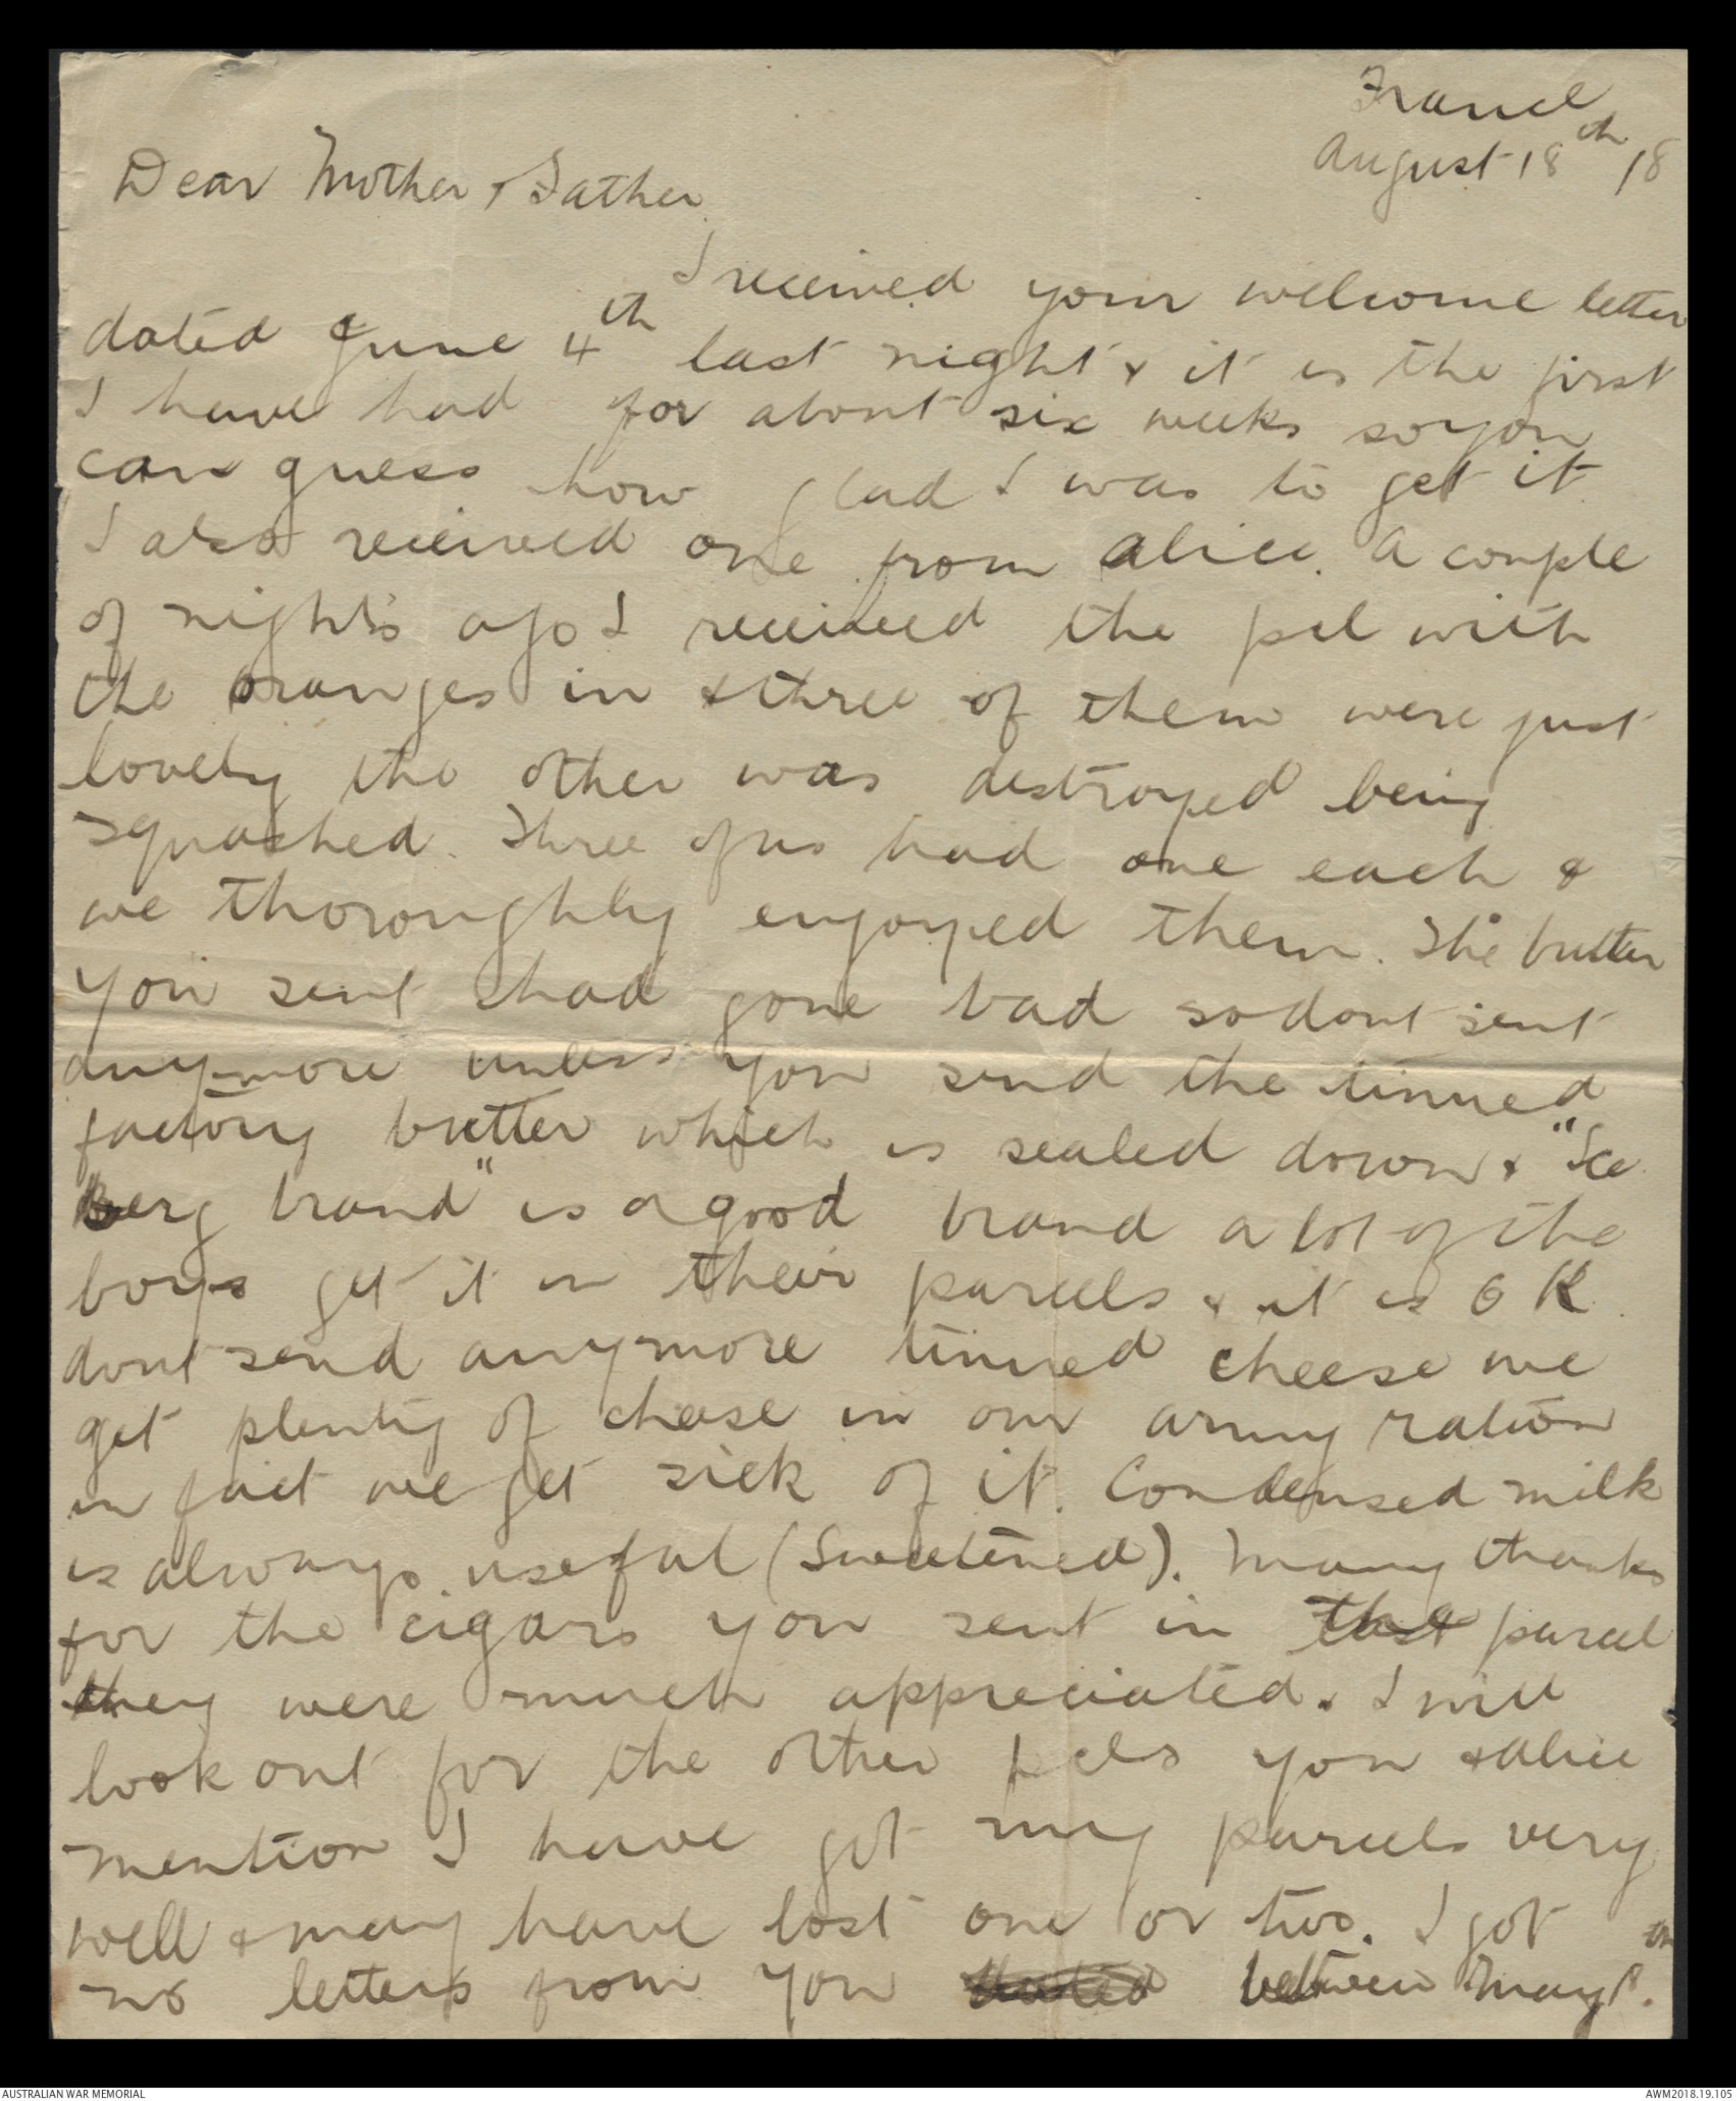 France
August 18th 18
Dear Mother & Father
I received your welcome letter
dated June 4th last night & it is the first
I have had for about six weeks so you
can guess how glad I was to get it
I also received one from Alice. A couple
of nights ago I received the pcl with
the oranges in & three of them were just
lovely the other was destroyed being
squashed. Three of us had one each &
we thoroughly enjoyed them. The butter
you sent had gone bad so dont sent
anymore unless you send the tinned
factory butter which is sealed down & "Ice
Berg brand" is a good brand a lot of the
boys get it in their parcels & it is O K.
dont send anymore tinned cheese we
get plenty of cheese in our army ration
in fact we get sick of it. Condensed milk
is always useful (Sweetened). Many thanks
for the cigars you sent in parcel
they were much appreciated. I will
look out for the other pcls you & Alice
mention I have got my parcels very
well & may have lost one or two. I got
no letters from you dated between May
AUSTRALIAN WAR MEMORIAL
AWM2018.19.105